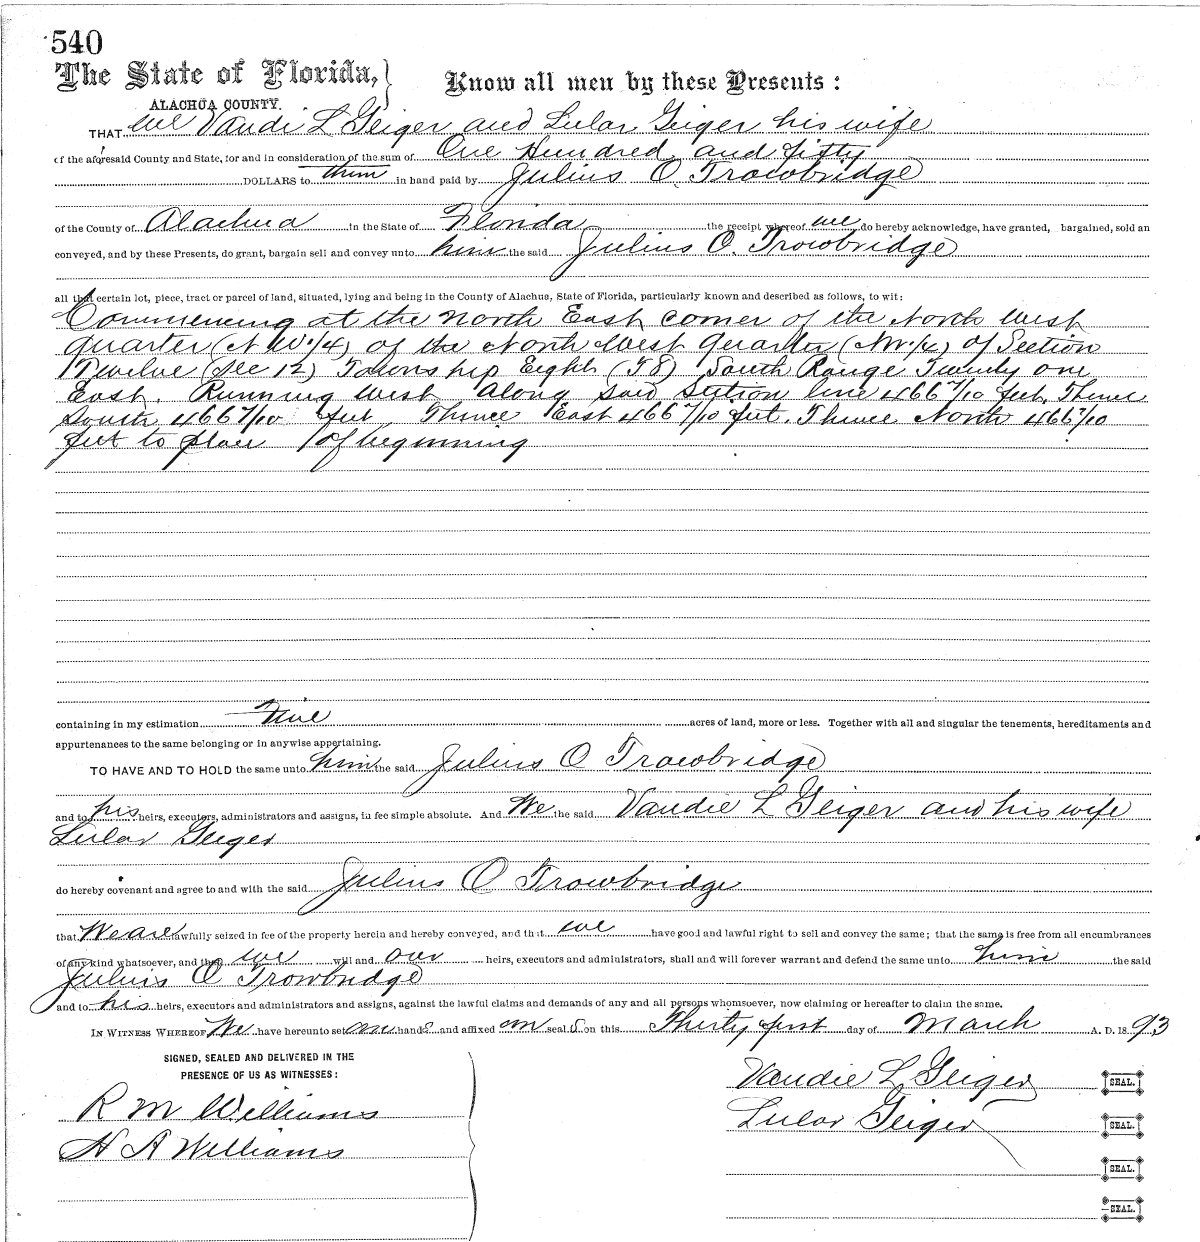 540
The State of Florida, Know all men by these Presents:
ALACHUA COUNTY.
THAT we Vandi L Geiger and Lular Geiger his wife
of the aforesaid County and State, for and in consideration of the sum of One Hundred and fifty
DOLLARS to them in hand paid by Julius O. Trowbridge
of the County of Alachua in the State of Florida the receipt whereof we do hereby acknowledge, have granted, bargained, sold an
conveyed, and by these Presents, do grant, bargain sell and convey unto him the said Julius O. Trowbridge
all that certain lot, piece, tract or parcel of land, situated, lying and being in the County of Alachua, State of Florida, particularly known and described as follows, to wit:
Commencing at the North East corner of the North West
quarter (N W 1/4) of the North West quarter (N W 1/4) of Section
Twelve (Sec 12) Township Eight (T8) South Range Twenty one
East. Running West along said section line 466 7/10 feet, Thence
South 466 7/10 feet Thence East 466 7/10 feet. Thence North 466 7/10
feet to place of beginning
containing in my estimation Five acres of land, more or less. Together with all and singular the tenements, hereditaments and
appurtenances to the same belonging or in anywise appertaining.
TO HAVE AND TO HOLD the same unto him the said Julius O Trowbridge
and to his heirs, executors, administrators and assigns, in fee simple absolute. And We the said Vandie L Geiger and his wife
Lular Geiger
do hereby covenant and agree to and with the said Julius O Trowbridge
that We are lawfully seized in fee of the property herein and hereby conveyed, and that we have good and lawful right to sell and convey the same; that the same is free from all encumbrances
of any kind whatsoever, and that we will and our heirs, executors and administrators, shall and will forever warrant and defend the same unto him the said
Julius O Trowbridge
and to his heirs, executors and administrators and assigns, against the lawful claims and demands of any and all persons whomsoever, now claiming or hereafter to claim the same.
IN WITNESS WHEREOF We have hereunto set our hands and affixed our seals on this Thirty first day of March A. D. 1893
SIGNED, SEALED AND DELIVERED IN THE
PRESENCE OF US AS WITNESSES:
R M Williams
H A Williams
Vandie L Geiger SEAL.
Lular Geiger SEAL.
SEAL.
SEAL.